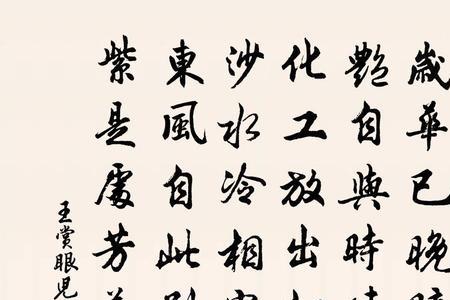 歲華已晚
艷自與時
化工放出
沙水冷相
東風自此
紫是處芳
王賞眼児